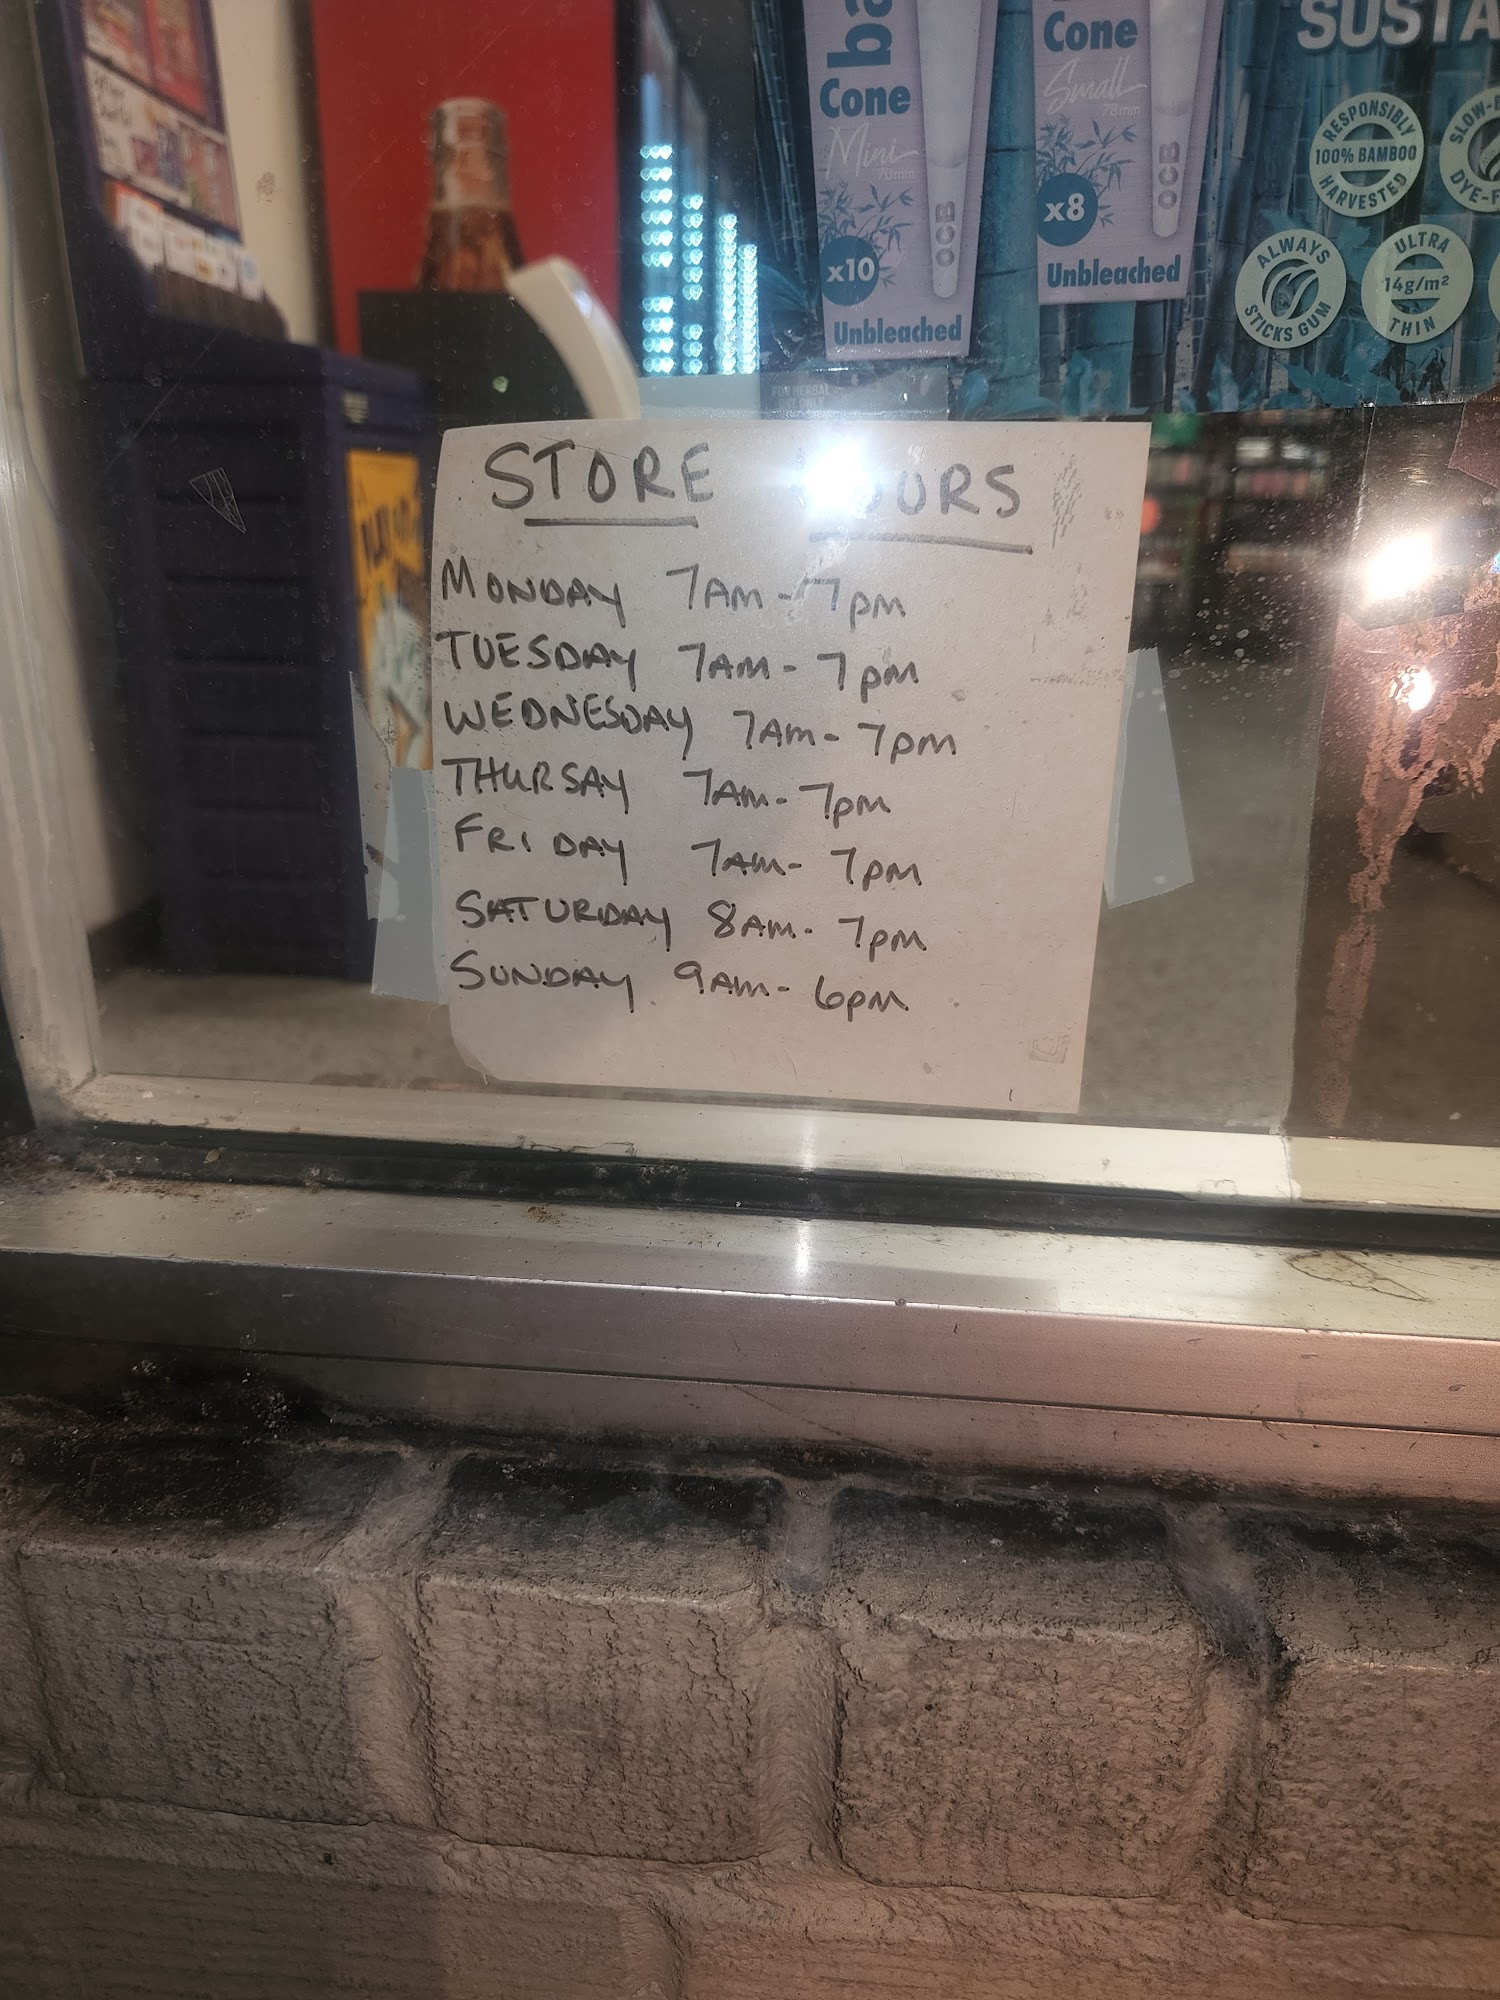 ba
Cone
Mini
70mm
OCB
x10
Unbleached
Cone
Small
78mm
OCB
x8
Unbleached
SUSTA
RESPONSIBLY
100% BAMBOO
HARVESTED
SLOW-B
DYE-F
ALWAYS
STICKS GUM
ULTRA
14g/m²
THIN
FOR HERBAL
USE ONLY
STORE OURS
MONDAY 7AM-7PM
TUESDAY 7AM-7PM
WEDNESDAY 7AM-7PM
THURSAY 7AM-7PM
FRIDAY 7AM-7PM
SATURDAY 8AM-7PM
SUNDAY 9AM-6PM